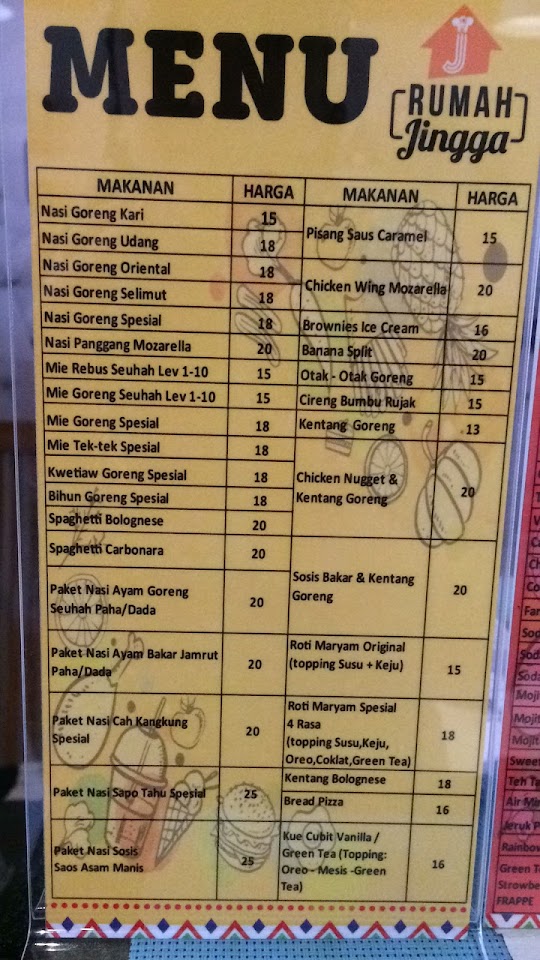 MENU
RUMAH
Jingga
MAKANAN HARGA MAKANAN HARGA
Nasi Goreng Kari 15
Nasi Goreng Udang 18
Nasi Goreng Oriental 18
Nasi Goreng Selimut 18
Nasi Goreng Spesial 18
Nasi Panggang Mozarella 20
Mie Rebus Seuhah Lev 1-10 15
Mie Goreng Seuhah Lev 1-10 15
Mie Goreng Spesial 18
Mie Tek-tek Spesial 18
Kwetiaw Goreng Spesial 18
Bihun Goreng Spesial 18
Spaghetti Bolognese 20
Spaghetti Carbonara 20
Paket Nasi Ayam Goreng
Seuhah Paha/Dada 20
Paket Nasi Ayam Bakar Jamrut
Paha/Dada 20
Paket Nasi Cah Kangkung
Spesial 20
Paket Nasi Sapo Tahu Spesial 25
Paket Nasi Sosis
Saos Asam Manis 25
Pisang Saus Caramel 15
Chicken Wing Mozarella 20
Brownies Ice Cream 16
Banana Split 20
Otak - Otak Goreng 15
Cireng Bumbu Rujak 15
Kentang Goreng 13
Chicken Nugget &
Kentang Goreng 20
Sosis Bakar & Kentang
Goreng 20
Roti Maryam Original
(topping Susu + Keju) 15
Roti Maryam Spesial
4 Rasa
(topping Susu,Keju,
Oreo,Coklat,Green Tea) 18
Kentang Bolognese 18
Bread Pizza 16
Kue Cubit Vanilla /
Green Tea (Topping:
Oreo - Mesis -Green
Tea) 16
Soda
Moji
Mojit
Mojit
Sweet
Teh Ta
Air Min
Jeruk P
Rainbow
Green T
Strowbe
FRAPPE